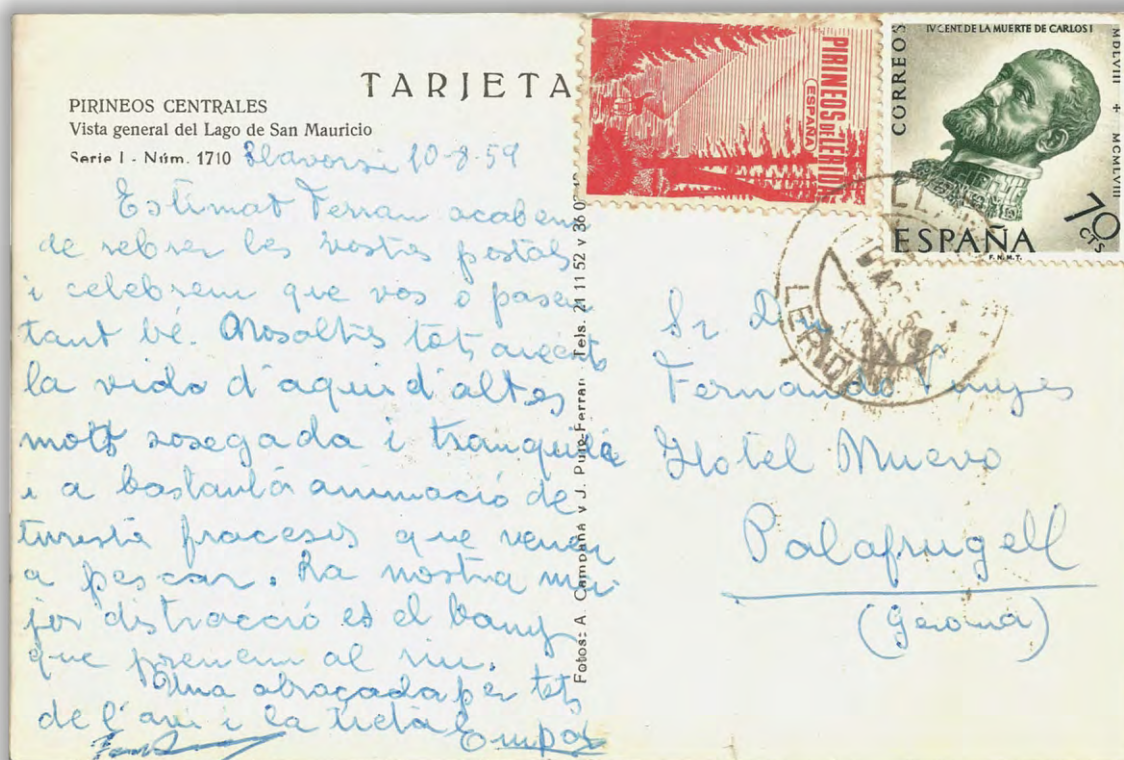 TARJETA
PIRINEOS CENTRALES
Vista general del Lago de San Mauricio
Serie I - Núm. 1710
Llavorsi 10-8-59
Estimat Ferran acabem
de rebrer les vostes postals
i celebrem que vos o paseu
tant bé. Nosaltres tots
la vida d'aqui d'altes
molt sosegada i tranquila
i a bastanta animació de
turista fracesis que venen
a pescar. La nostra ma-
jor distracció es el bany
que prenem al riu.
Una abraçada per tots
de l'avi i la tieta
Empar
Fotos: A. Campaña y J. Puig-Ferran - Tels. 21 11 52 y 36 0
PIRINEOS DE LERIDA
(ESPAÑA)
CORREOS
IV CENT. DE LA MUERTE DE CARLOS I
MDLVIII + MCMLVIII
70 CTS
ESPAÑA
F.N.M.T.
LERIDA
Sr Dn
Fernando
Hotel Nuevo
Palafrugell
(Gerona)